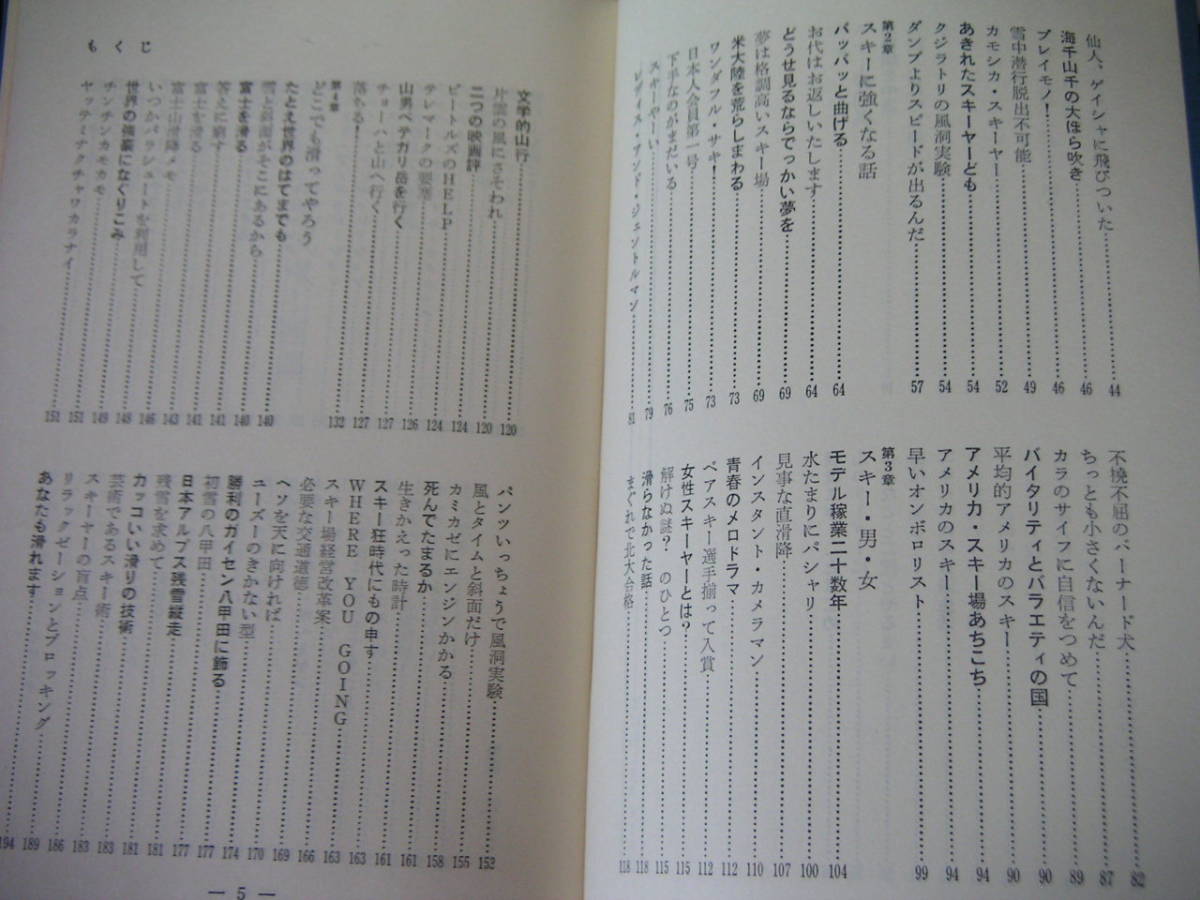 仙人、ゲイシャに飛びついた 44
海千山千の大ほら吹き 46
プレイモノ! 46
雪中潜行脱出不可能 49
カモシカ・スキーヤー 52
あきれたスキーヤーども 54
クジラトリの風洞実験 54
ダンプよりスピードが出るんだ 57
第2章
スキーに強くなる話
パッパッと曲げる 64
お代はお返しいたします 64
どうせ見るならでっかい夢を 69
夢は格調高いスキー場 69
米大陸を荒らしまわる 73
ワンダフル・サキ! 73
日本人会員第一号 75
下手なのがまだいる 76
スキーヤーい 79
レディス・アンド・ジェントルマン 81
不撓不屈のバーナード犬 82
ちっとも小さくないんだ 87
カラのサイフに自信をつめて 89
バイタリティとバラエティの国 90
平均的アメリカのスキー 90
アメリカ・スキー場あちこち 94
アメリカのスキー 94
早いオンボロリスト 99
第3章
スキー・男・女
モデル稼業二十数年 104
水たまりにパシャリ 100
見事な直滑降 107
インスタント・カメラマン 110
青春のメロドラマ 112
ペアスキー選手揃って入賞 112
女性スキーヤーとは? 115
解けぬ謎? のひとつ 115
滑らなかった話 118
まぐれで北大合格 118
文学的山行 120
片雲の風にさそわれ 120
二つの映画評 124
ビートルズのHELP 124
テレマークの要 126
山男ペテガリ岳を行く 127
チョーハと山へ行く 127
落ちる! 132
第4章
どこでも滑ってやろう
たとえ世界のはてまでも 140
雪と斜面がそこにあるから 140
富士を滑る 141
答えに窮す 141
富士を滑る 143
富士山滑降メモ 146
いつかパラシュートを利用して 148
世界の強豪になぐりこみ 149
チンチンカモカモ 151
ヤッテミナクチャワカラナイ 151
もくじ
パンツいっちょうで風洞実験 152
風とタイムと斜面だけ 155
カミカゼにエンジンかかる 158
死んでたまるか 161
生きかえった時計 161
スキー狂時代にもの申す 163
WHERE YOU GOING 163
スキー場経営改革案 166
必要な交通道徳 169
ヘソを天に向ければ 170
ユーズーのきかない型 174
勝利のガイセン八甲田に飾る 177
初雪の八甲田 177
日本アルプス残雪縦走 181
残雪を求めて 181
カッコいい滑りの技術 183
芸術であるスキー術 183
スキーヤーの盲点 186
リラックゼーションとブロッキング 189
あなたも滑れます 194
— 5 —